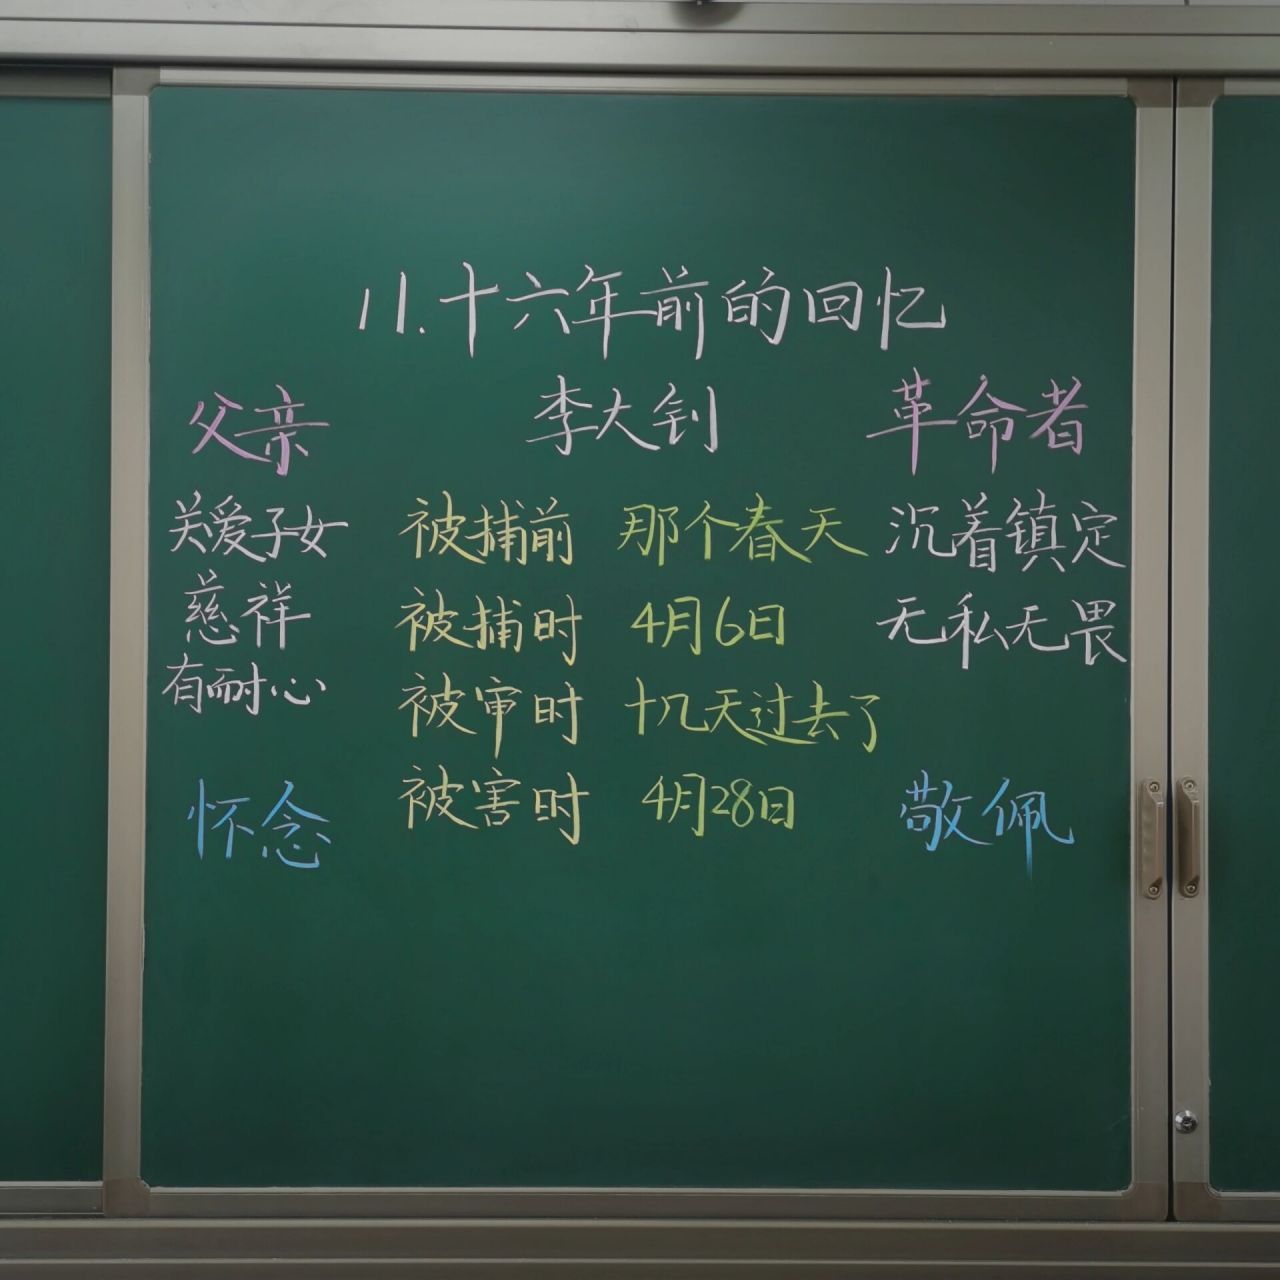 11.十六年前的回忆
父亲 李大钊 革命者
关爱子女 被捕前 那个春天 沉着镇定
慈祥 被捕时 4月6日 无私无畏
有耐心 被审时 十几天过去了
怀念 被害时 4月28日 敬佩